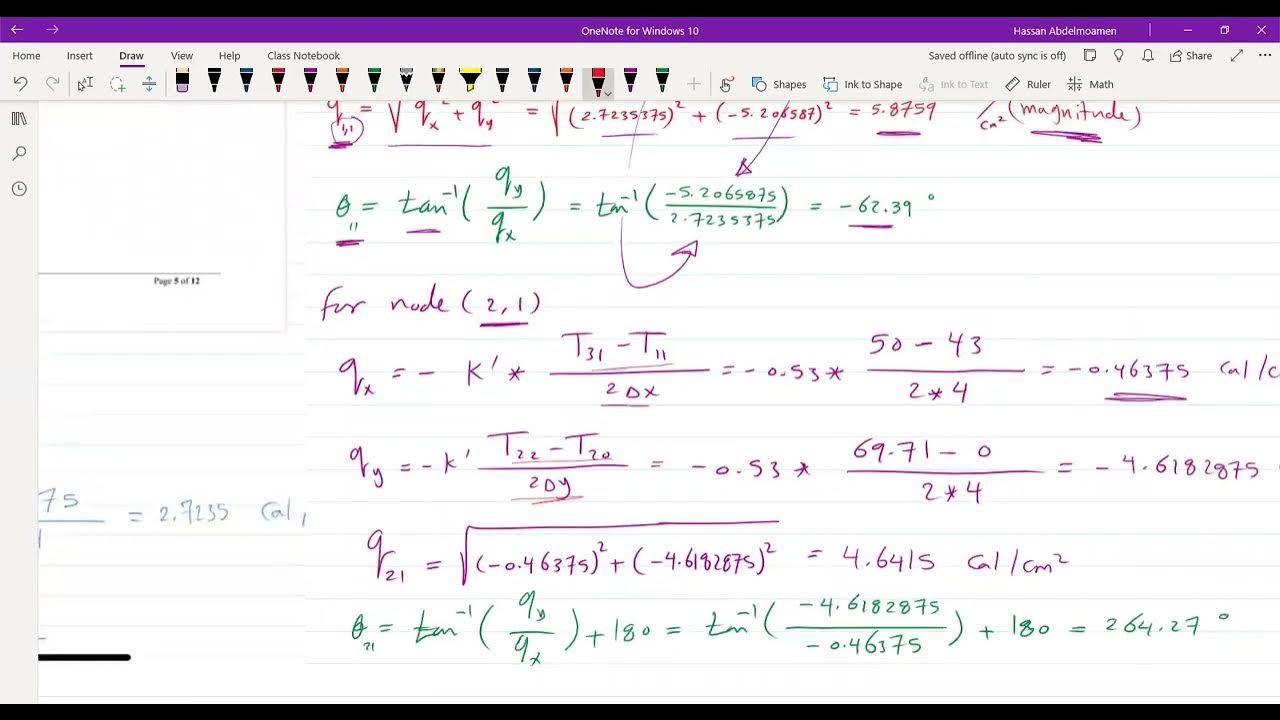 OneNote for Windows 10
Hassan Abdelmoamen
Home Insert Draw View Help Class Notebook
Saved offline (auto sync is off) Share
Shapes Ink to Shape Ink to Text Ruler Math
q₁,₁ = √(qx² + qy²) = √((2.7235375)² + (-5.206587)²) = 5.8759 /cm² (magnitude)
θ₁₁ = tan⁻¹(qy/qx) = tan⁻¹(-5.2065875/2.7235375) = -62.39°
Page 5 of 12
for node (2,1)
qx = - K' * (T₃₁ - T₁₁)/(2Δx) = -0.53 * (50 - 43)/(2*4) = -0.46375 Cal/c
qy = -K' (T₂₂ - T₂₀)/(2Δy) = -0.53 * (69.71 - 0)/(2*4) = -4.6182875
75 = 2.7235 Cal,
q₂₁ = √((-0.46375)² + (-4.6182875)²) = 4.6415 Cal/cm²
θ₂₁ = tan⁻¹(qy/qx) + 180 = tan⁻¹(-4.6182875/-0.46375) + 180 = 264.27°